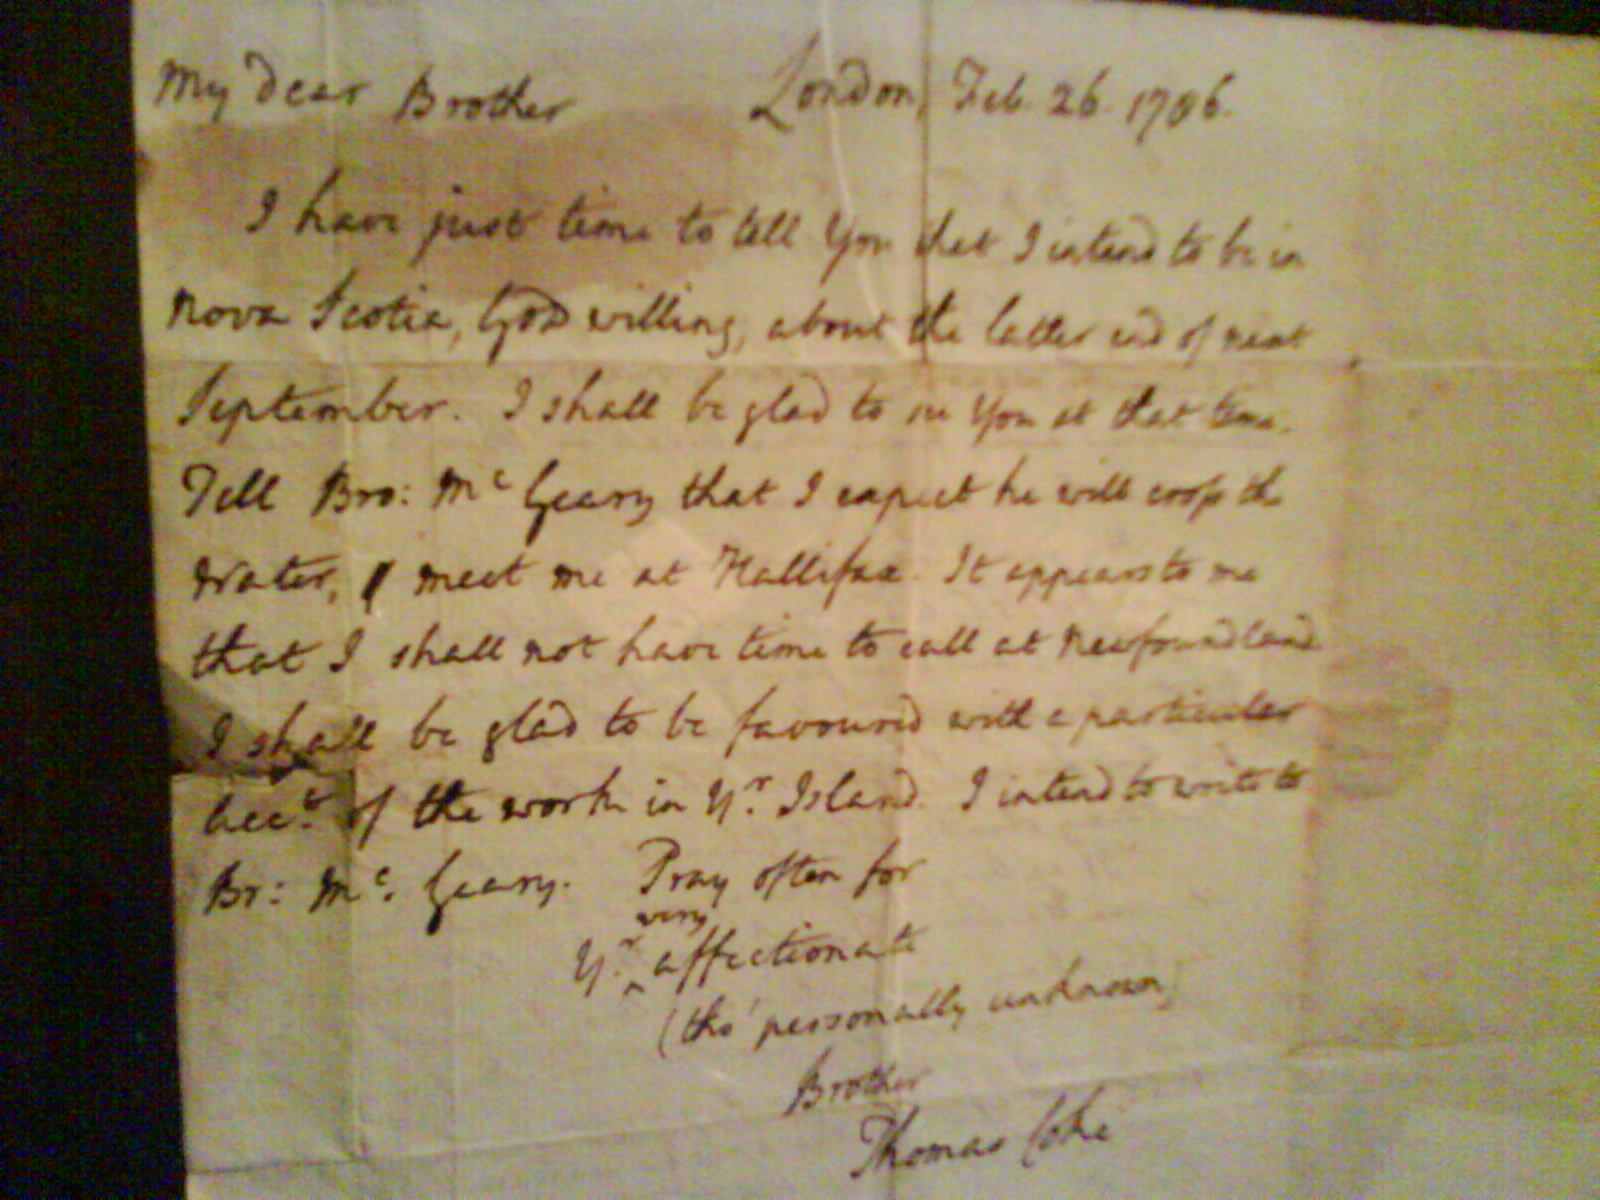 My Dear Brother London, Feb. 26. 1786.
I have just time to tell You that I intend to be in
Nova Scotia, God willing, about the latter end of next
September. I shall be glad to see You at that time.
Tell Bro: Mc Geary that I expect he will cross the
Water, & meet me at Hallifax. It appears to me
that I shall not have time to call at Newfoundland
I shall be glad to be favoured with a particular
Acct. of the work in Yr. Island. I intend to write to
Br: Mc. Geary. Pray often for
very
Yr. ‸ affectionate
(tho' personally unknown)
Brother
Thomas Coke